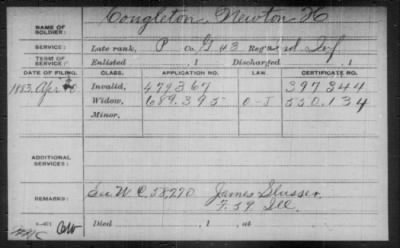 NAME OF SOLDIER: Congleton, Newton H
SERVICE: Late rank, P Co G 43 Reg't Ind. Inf
TERM OF SERVICE: Enlisted , 1 Discharged , 1
DATE OF FILING. CLASS. APPLICATION NO. LAW. CERTIFICATE NO.
1883, Apr Invalid, 479367 397344
Widow, 689.395 O-I 550.134
Minor,
ADDITIONAL SERVICES:
REMARKS: See W C 58,770 James Slusser
F. 59 Ill
Died , 1 , at